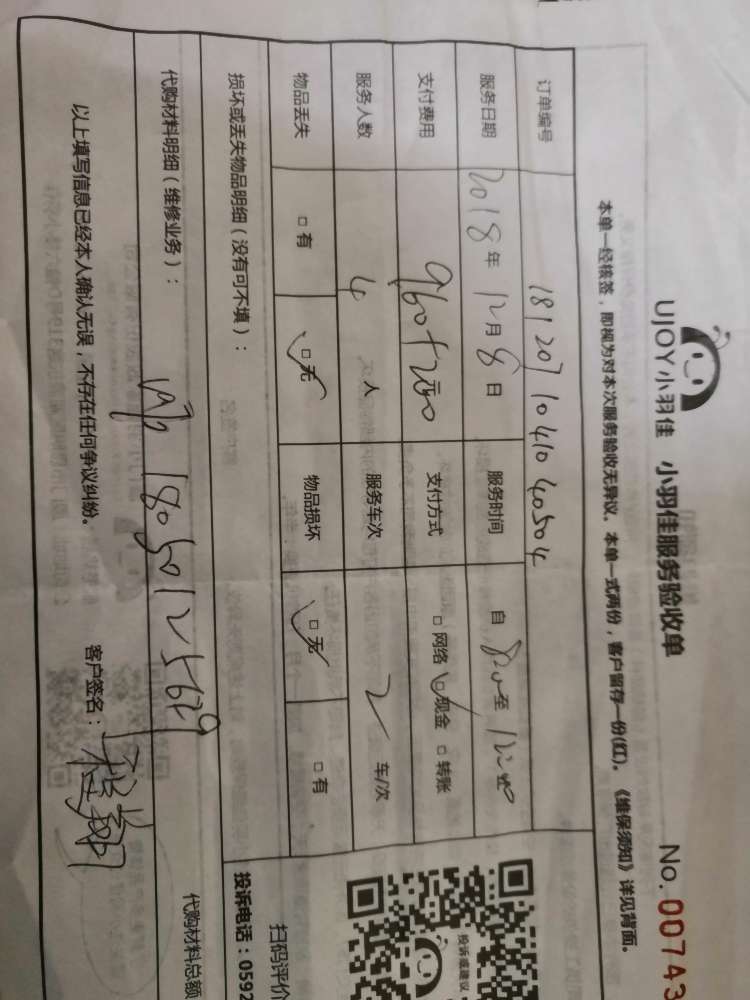 UJOY小羽佳 小羽佳服务验收单 No. 00743
本单一经核签，即视为对本次服务验收无异议。本单一式两份，客户留存一份(红)。《维保须知》详见背面。
订单编号 18120710410 40504
服务日期 2018年12月8日 服务时间 自 820至
支付费用 960+ 支付方式 □网络 □现金 □转账
服务人数 4 人 服务车次 2 车/次
物品丢失 □有 □无 物品损坏 □无 □有
损坏或丢失物品明细（没有可不填）：
代购材料明细（维修业务）： 18050125629
代购材料总额
以上填写信息已经本人确认无误，不存在任何争议纠纷。 客户签名：
投诉或建议
扫码评价
投诉电话：0592